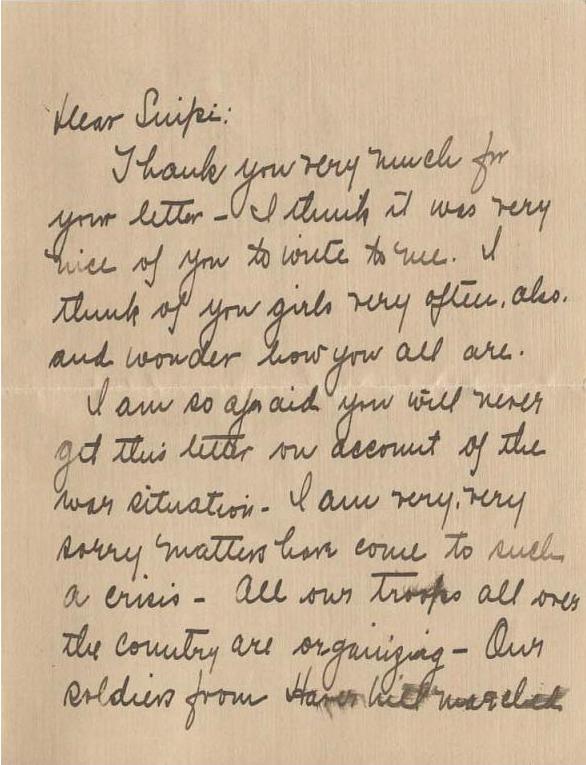 Dear Snipi:
Thank you very much for
your letter - I think it was very
nice of you to write to me. I
think of you girls very often, also.
and wonder how you all are.
I am so afraid you will never
get this letter on account of the
war situation - I am very, very
sorry matters have come to such
a crisis - All our troops all over
the country are organizing - Our
soldiers from Haverhill marched